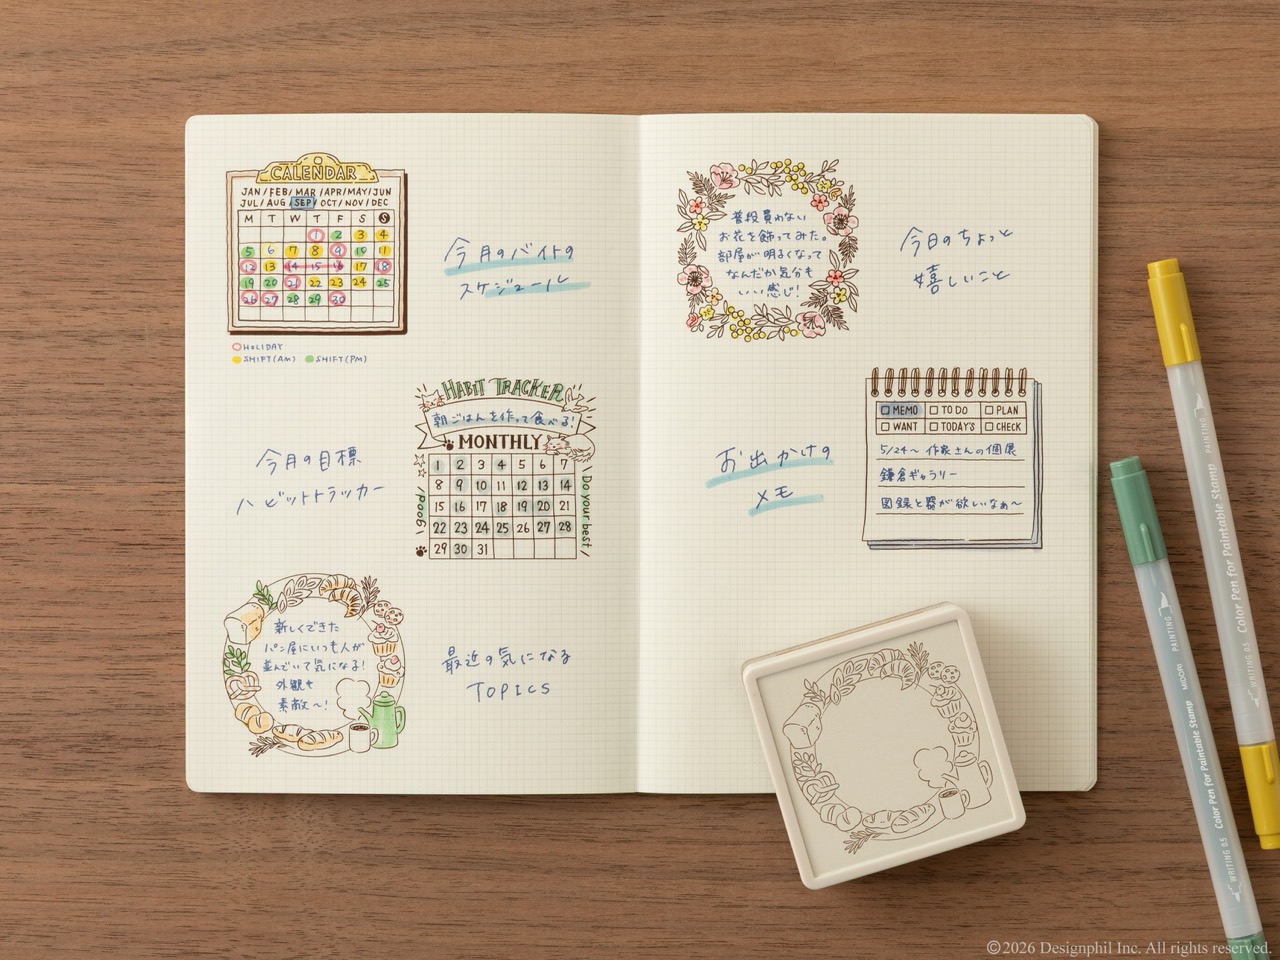 CALENDAR
JAN / FEB / MAR / APR / MAY / JUN
JUL / AUG / SEP / OCT / NOV / DEC
M T W T F S S
1 2 3 4
5 6 7 8 9 10 11
12 13 14 15 16 17 18
19 20 21 22 23 24 25
26 27 28 29 30
HOLIDAY
SHIFT(AM) SHIFT(PM)
今月のバイトの
スケジュール
HABIT TRACKER
朝ごはんを作って食べる!
MONTHLY
1 2 3 4 5 6 7
8 9 10 11 12 13 14
15 16 17 18 19 20 21
22 23 24 25 26 27 28
29 30 31
/Good!\
\Do your best/
今月の目標
ハビットトラッカー
新しくできた
パン屋にいつも人が
並んでいて気になる!
外観も
素敵〜!
最近の気になる
TOPICS
普段買わない
お花を飾ってみた。
部屋が明るくなって
なんだか気分も
いい感じ!
今日のちょっと
嬉しいこと
お出かけの
メモ
MEMO TO DO PLAN
WANT TODAY'S CHECK
5/24〜 作家さんの個展
鎌倉ギャラリー
図録と器が欲しいなぁ〜
PAINTING
Color Pen for Paintable Stamp
WRITING 0.5
PAINTING
MIDORI
Color Pen for Paintable Stamp
WRITING 0.5
©2026 Designphil Inc. All rights reserved.